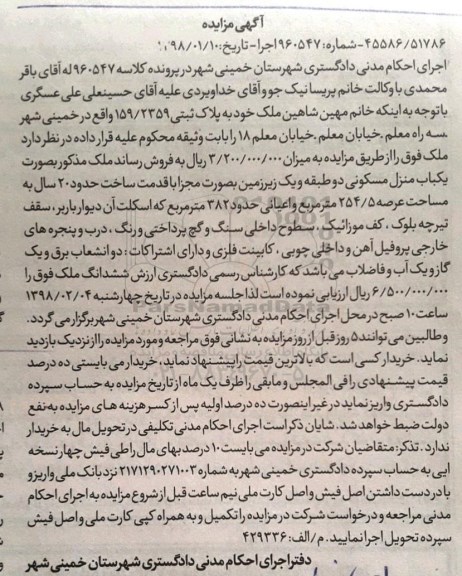 آگهی مزایده
۴۵۵۸۶/۵۱۷۸۶-شماره: ۹۶۰۵۴۷ اجرا - تاریخ: ۹۸/۰۱/۱۰
اجرای احکام مدنی دادگستری شهرستان خمینی شهر در پرونده کلاسه ۹۶۰۵۴۷ له آقای باقر
محمدی با وکالت خانم پریسا نیک جو و آقای خداویردی علیه آقای حسینعلی علی عسگری
با توجه به اینکه خانم مهین شاهین ملک خود به پلاک ثبتی ۱۵۹/۲۳۵۹ واقع در خمینی شهر
سه راه معلم .خیابان معلم .خیابان معلم ۱۸ را بابت وثیقه محکوم علیه قرار داده در نظر دارد
ملک فوق را از طریق مزایده به میزان ۳/۲۰۰/۰۰۰/۰۰۰ ریال به فروش رساند ملک مذکور بصورت
یکباب منزل مسکونی دو طبقه و یک زیرزمین بصورت مجزا با قدمت ساخت حدود ۲۰ سال به
مساحت عرصه ۲۵۴/۵ مترمربع و اعیانی حدود ۳۸۲ مترمربع که اسکلت آن دیوار باربر ، سقف
تیرچه بلوک ، کف موزائیک ، سطوح داخلی سنگ و گچ پرداختی و رنگ ، درب و پنجره های
خارجی پروفیل آهن و داخلی چوبی ، کابینت فلزی و دارای اشتراکات : دو انشعاب برق و یک
گاز و یک آب و فاضلاب می باشد که کارشناس رسمی دادگستری ارزش ششدانگ ملک فوق را
۶/۵۰۰/۰۰۰/۰۰۰ ریال ارزیابی نموده است لذا جلسه مزایده در تاریخ چهارشنبه ۱۳۹۸/۰۲/۰۴
ساعت ۱۰ صبح در محل اجرای احکام مدنی دادگستری شهرستان خمینی شهر برگزار می گردد.
و طالبین می توانند ۵ روز قبل از روز مزایده به نشانی فوق مراجعه و مورد مزایده را از نزدیک بازدید
نماید. خریدار کسی است که بالاترین قیمت را پیشنهاد نماید، خریدار می بایستی ده درصد
قیمت پیشنهادی را فی المجلس و مابقی را ظرف یک ماه از تاریخ مزایده به حساب سپرده
دادگستری واریز نماید در غیر اینصورت ده درصد اولیه پس از کسر هزینه های مزایده به نفع
دولت ضبط خواهد شد. شایان ذکر است اجرای احکام مدنی تکلیفی در تحویل مال به خریدار
ندارد . تذکر: متقاضیان شرکت در مزایده می بایست ۱۰ درصد بهای مال را طی فیش چهار نسخه
ایی به حساب سپرده دادگستری خمینی شهر به شماره ۲۱۷۱۲۹۰۲۷۱۰۰۳ نزد بانک ملی واریز و
با در دست داشتن اصل فیش و اصل کارت ملی نیم ساعت قبل از شروع مزایده به اجرای احکام
مدنی مراجعه و درخواست شرکت در مزایده را تکمیل و به همراه کپی کارت ملی و اصل فیش
سپرده تحویل اجرا نمایید. م/الف: ۴۲۹۳۳۶
دفتر اجرای احکام مدنی دادگستری شهرستان خمینی شهر